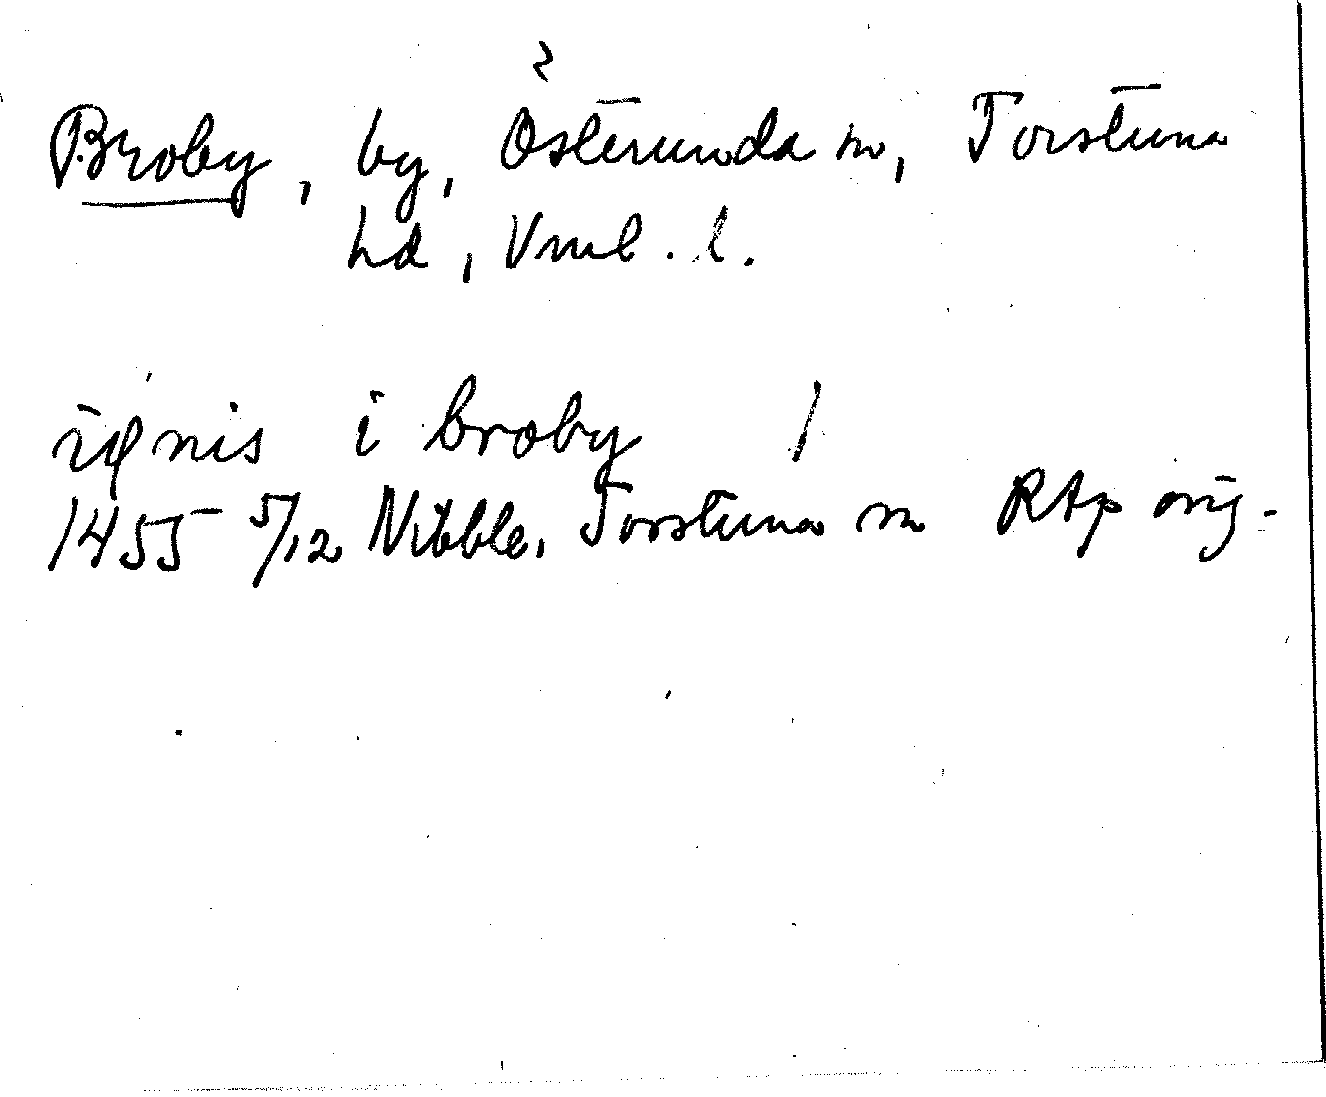 Broby, by, Österunda sn, Torstuna
hd, Vml. l.
i broby /
1455 5/12 Nibble, Torstuna sn RAp orig.